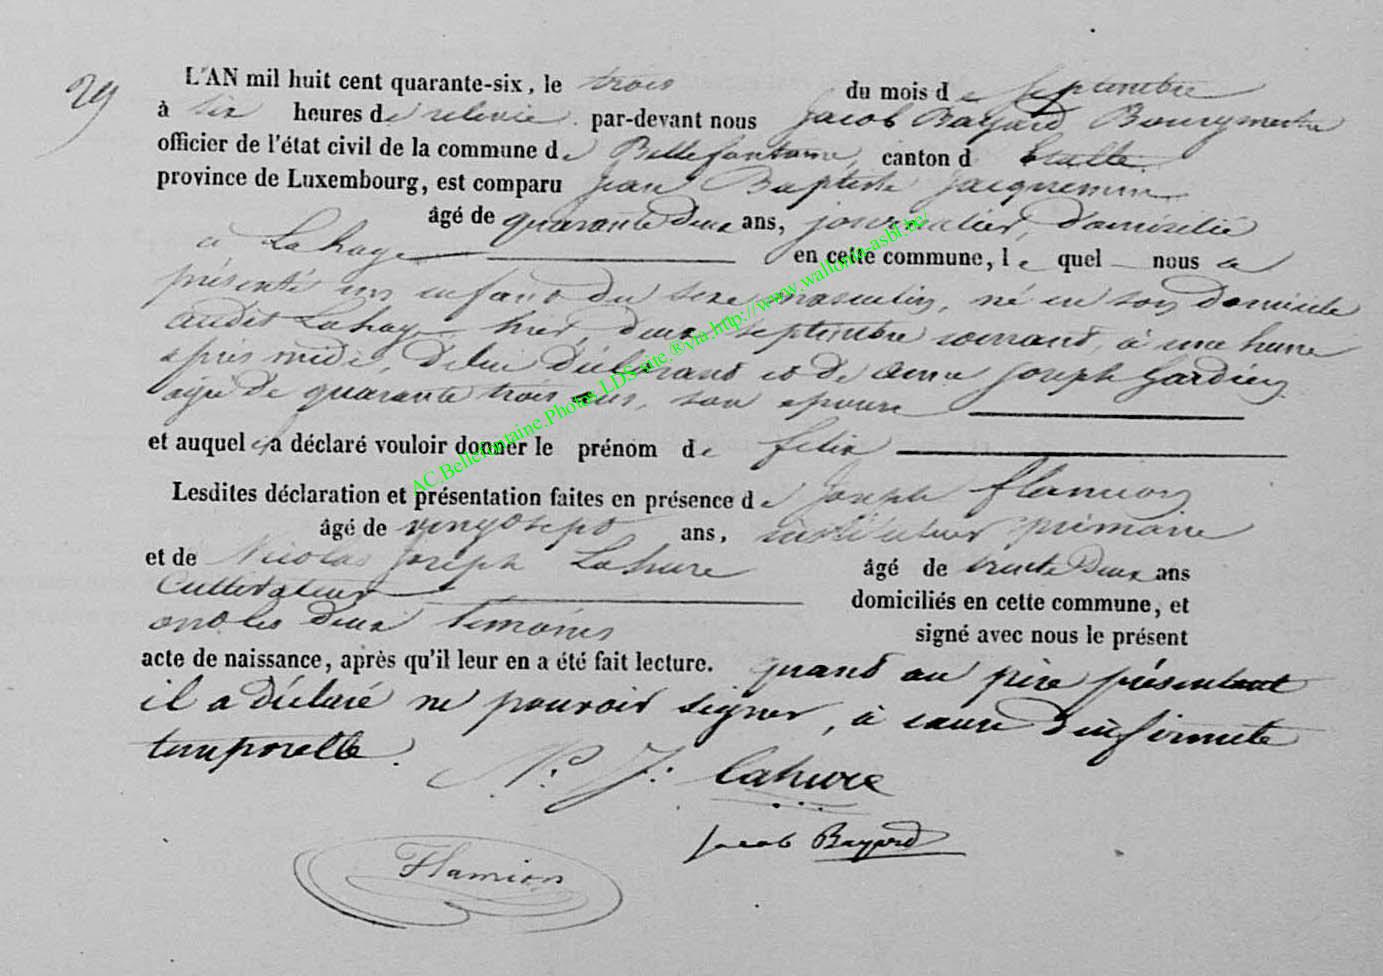 29
L'AN mil huit cent quarante-six, le trois du mois de Septembre
à six heures de relevée par-devant nous Jacob Bayard Bourgmestre
officier de l'état civil de la commune de Bellefontaine, canton d'Etalle
province de Luxembourg, est comparu Jean Baptiste Jacquemin
âgé de quarante deux ans, journalier, domicilié
à Lahage en cette commune, le quel nous a
présenté un enfant du sexe masculin, né en son domicile
audit Lahage hier, deux septembre courant, à une heure
après midi de lui déclarant et de Anne Joseph Gardien
agée de quarante trois ans, son épouse
et auquel il a déclaré vouloir donner le prénom de felix
Lesdites déclaration et présentation faites en présence de Joseph flamion
âgé de vingt sept ans, instituteur primaire
et de Nicolas Joseph Lahure âgé de trente deux ans
Cultivateur domiciliés en cette commune, et
ont les deux témoins signé avec nous le présent
acte de naissance, après qu'il leur en a été fait lecture. quant au père présentant
il a déclaré ne pouvoir signer, à cause d'infirmité
temporelle.
N. J. Lahure
Jacob Bayard
Flamion
AC.Bellefontaine.Photos.LDS site.®via.http://www.wallonia-asbl.be/